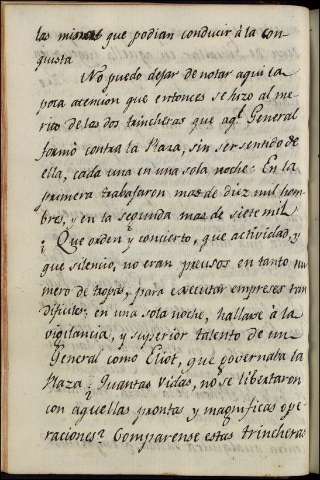 las minas que podian conducir à la con
quista
No puedo dejar de notar aqui la
poca atencion que entonces se hizo al me
rito de las dos trincheras que aql. General
formò contra la Plaza, sin ser sentido de
ella, cada una en una sola noche: En la
primera trabajaron mas de diez mil hom
bres, y en la segunda mas de siete mil
¿Que orden y concierto, que actividad, y
que silencio, no eran precisos en tanto nu
mero de tropas, para executar empresas tan
dificiles; en una sola noche, hallase à la
vigilancia, y superior talento de un
General como Eliot, que governaba la
Plaza? Quantas vidas, no se libertaron
con aquellas prontas y magnificas ope
raciones? Comparense estas trincheras